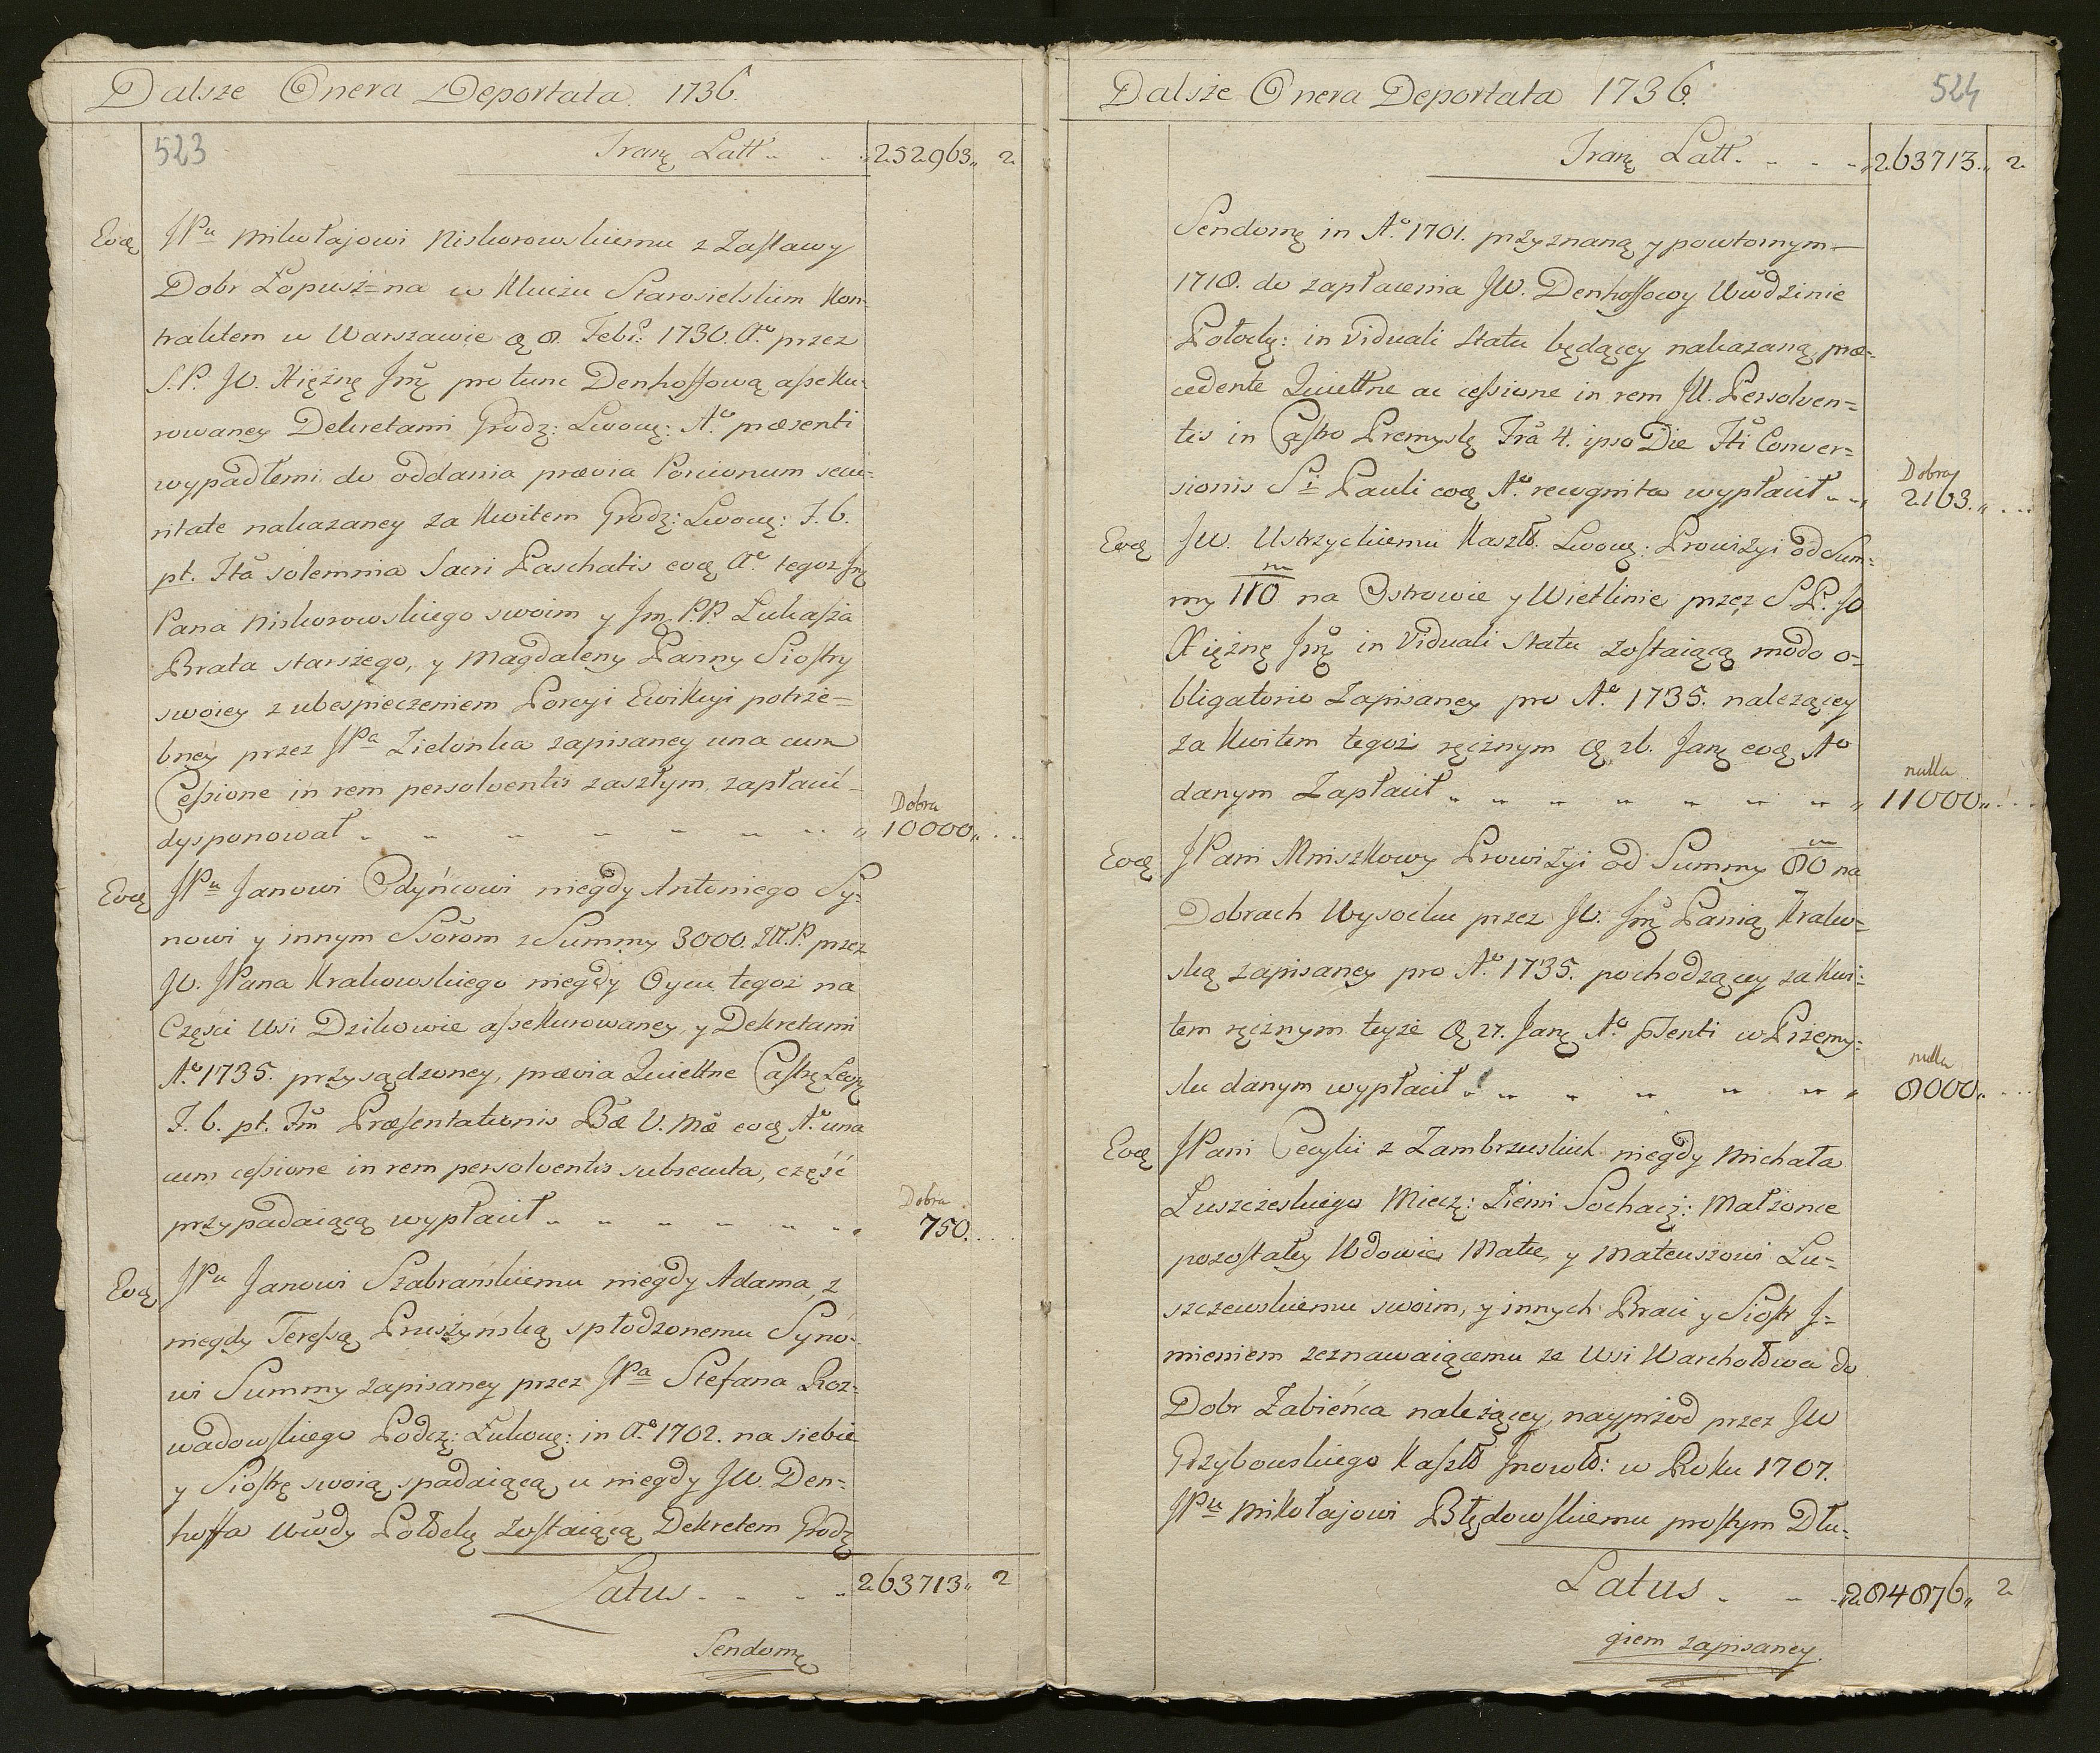 Dalsze Onera Deportata 1736.
523
Tranę Latt 252963 2
Eoę JPu Mikołajowi Niskorowskiemu z Zastawy
Dobr Łopusz=na w Kluczu Starosielskim Kon-
traktem w Warszawie 8 Febr: 1730. Ao przez
S.P. JO. Xiężnę Jmę pro tunc Denhoffową assekur-
rowaney Dekretami Grodz: Lwowę: Ao. præsenti
wypadłemi do oddania prævia Porcionum secu-
ritate nakazaney za Kwitem Grodz: Lwowę: F. 6.
pt. Ita solemnia Sacri Paschatis eoę Ao tegoz Jmę
Pana Niskorowskiego swoim y Jm. P.P. Lukasza
Brata starszego, y Magdaleny Panny Siostry
swoiey z ubespieczeniem Porcyi Ewikcyi potrze=
bney przez JPa Zielonka zapisaney una cum
Cessione in rem persolventis zaszłym, zapłacić
dysponował Dobra 10000
Eoę JPu Janowi Odyńcowi niegdy Antoniego Sy-
nowi y innym Ssorom z Summy 3000. Zł.P. przez
JO. JPana Krakowskiego niegdy Oycu tegoz na
Częsci Wsi Dzikowie assekurowaney, y Dekretami
Ao 1735. przysądzoney, prævia Quiettne Castrę Leopę
F. 6. pt. Fm Præsentationis Bæ V. Mæ eoę Ao. una
cum cessione in rem persolventis subsecuta, część
przypadaiącą wypłacił Dobra 750.
Eoę JPu Janowi Szabrańskiemu niegdy Adama, z
niegdy Teressą Pruszynską spłodzonemu Syno-
wi Summy zapisaney przez JPa Stefana Roz-
wadowskiego Podcz: Łukowę: in Ao 1702. na siebie
y Siostrę swoią spadaiącą u niegdy JW. Den-
hoffa Wwdy Połockę zostaiącą Dekretem Grodz
Latus 263713 2
Sendomę
Dalsze Onera Deportata 1736.
524
Tranę Latt. 263713 2
Sendomę in Ao. 1701. przyznaną y powtornym
1718. do zapłacenia JW. Denhoffowy Wwdzinie
Połockę: in Viduali statu będącey nakazaną, præ-
cedente Quiettne ac cessione in rem JW. Persolven=
tis in Castro Premyslę Fra 4. ipso Die Fti Conver=
sionis Si Pauli eoę Ao. recognita wypłacił Dobra 2163.
Eoę JW. Ustrzyckiemu Kasztł. Lwowę: Prowizyi od Sum-
my 110 m na Ostrowie y Wietlinie przez S.P. JO
Xiężnę Jmę in Viduali statu zostaiącą modo o-
bligatorio zapisaney pro Ao. 1735. nalezącey
za Kwitem tegoz ręcznym 26. Janę eoę Ao
danym Zapłacił nulla 11000
Eoę JPani Mniszkowy Prowizyi od Summy 80 m na
Dobrach Wysocku przez JO. Jmę Panią Krakow-
ską zapisaney pro Ao. 1735. pochodzącey za Kwi-
tem ręcznym teyże 27. Janę Ao pśenti w Przemy-
slu danym wypłacił nulla 8000
Eoę JPani Cecylii z Zambrzuskich niegdy Michała
Łuszczeskiego Miecz: Ziemi Sochacz: Małżonce
pozostałey Wdowie Matce, y Mateuszowi Łu-
szczewskiemu swoim, y innych Braci y Siostr J-
mieniem zeznawaiącemu ze Wsi Warchołowa do
Dobr Zabieńca należącey, nayprzod przez JW
Grzybowskiego Kasztł Jnowł: w Roku 1707.
JPu Mikołajowi Błędowskiemu prostym Dłu-
Latus 284876 2
giem zapisaney.